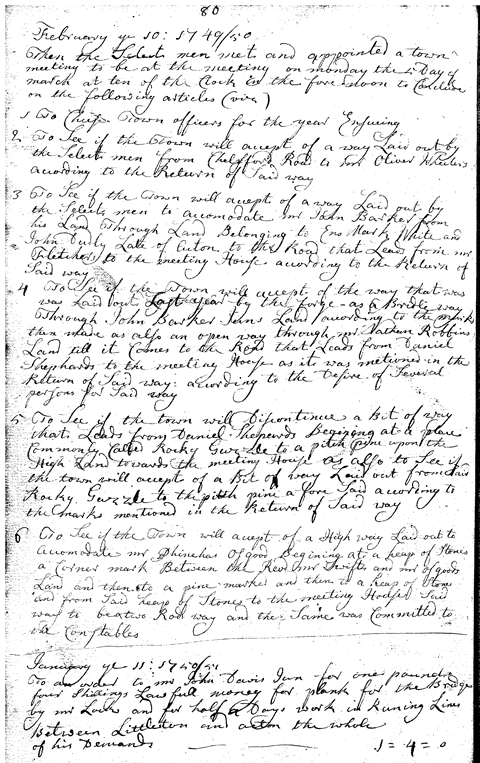 80
February ye 10: 1749/50
Then the Select men mett and appointed a town
meeting to be at the meeting on monday the 5 Day of
march at ten of the Clock in the fore noon to Conclude
on the following articles (viz)
1 To Chuse Town officers for the year Ensueing
2 To See if the Town will accept of a way Laid out by
the Select men from Chelsford Road to mr Oliver Wheelers
acording to the Return of Said way
3 To See if the Town will accept of a way Laid out by
the Select men to accomodate mr John Barker from
his Land Through Land Belonging to Ens Mark White and
John Late of Acton to the Road that Leads from mr
Fletchers to the meeting House according to the Return of
Said way
4 To See if the Town will accept of the way that was
was Laid out Last year by the forge as a Bridle way
Through John Barker Juns Land acording to the marks
then made as also an open way through mr Nathan Robbins
Land till it Comes to the Road that Leads from Daniel
Shepherds to the meeting House as it was metioned in the
Return of Said way: acording to the Desire of Several
persons for Said way
5 To See if the town will Discontinue a Bit of way
that Leads from Daniel Sheperds Begining at a place
Commonly Called Rocky Guzzle to a pitch pine upon the
High Land towards the meeting House as also to See if
the town will accept of a Bit of way Laid out from Said
Rocky Guzzle to the pitch pine a fore Said acording to
the marks mentioned in the Return of Said way
6 To See if the Town will accept of a High way Laid out to
accomodate mr Phinehas Osgood Begining at a heap of Stones
a Corner mark Between the Revd mr Swifts and mr osgoods
Land and then to a pine marked and then to a heap of Stone
and from Said heap of Stones to the meeting House Said
way to be a two Rod way and the Same was Committed to
the Constables
January ye 11: 1750/51
To an order to mr John Davis Jun for one pound
four Shillings Law full money for plank for the Bridge
by mr Locks and for half a Days work in Runing Lines
Between Littleton and acton the whole
of his Demands 1=4=0